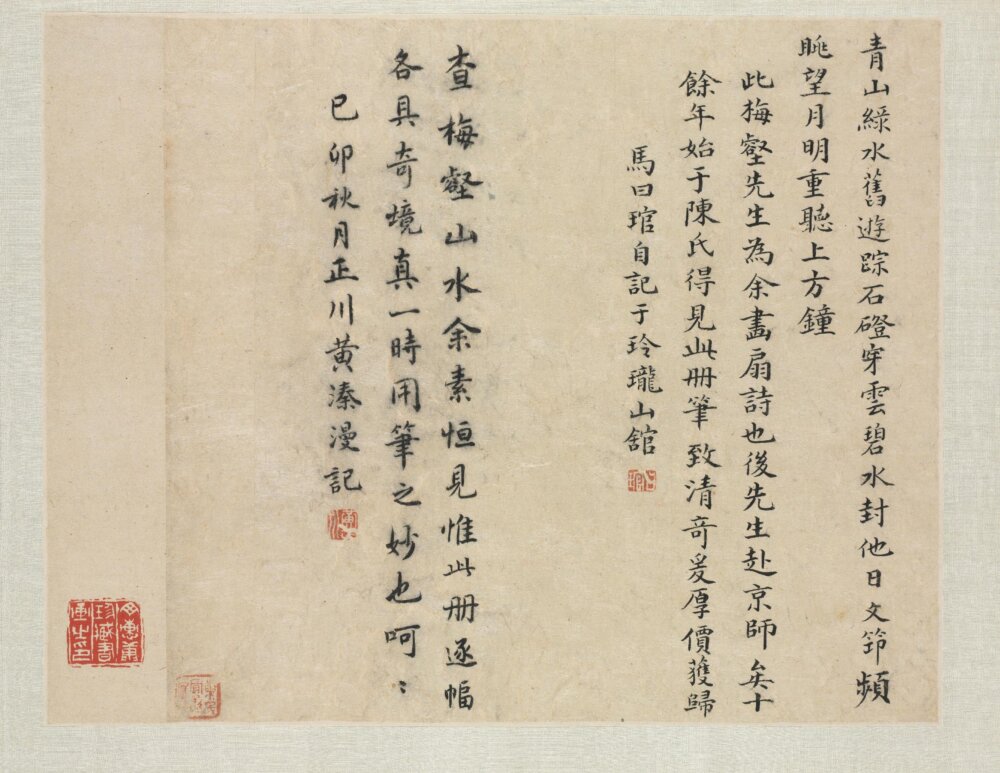 青山綠水舊遊踪石磴穿雲碧水封他日文筇頻
眺望月明重聽上方鐘
此梅壑先生為余畫扇詩也後先生赴京師矣十
餘年始于陳氏得見此冊筆致清奇爰厚價獲歸
馬曰琯自記于玲瓏山館
查梅壑山水余素恒見惟此冊逐幅
各具奇境真一時用筆之妙也呵〻
己卯秋月正川黃溱漫記